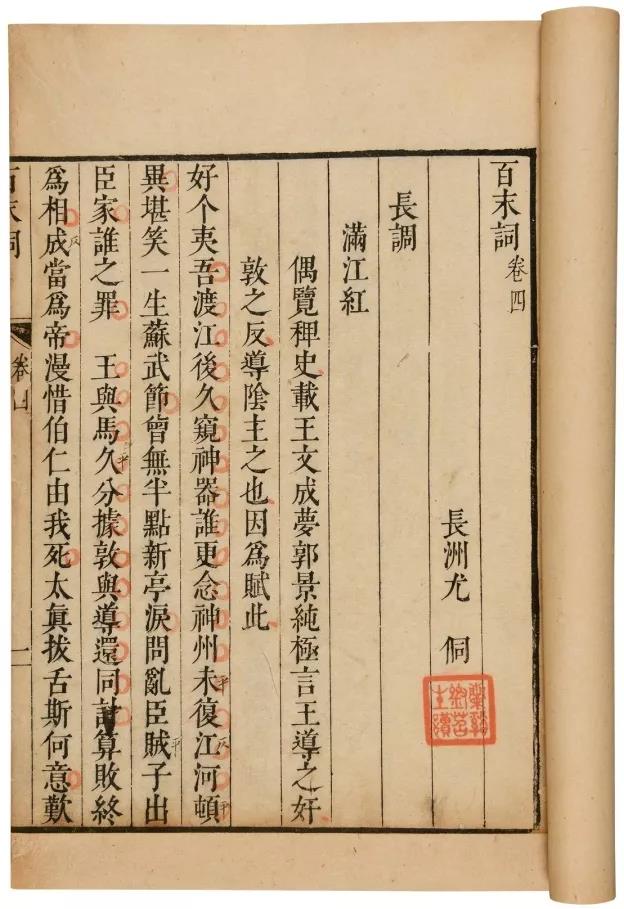 百末詞卷四
長洲尤侗
長調
滿江紅
偶覽稗史載王文成夢郭景純極言王導之奸
敦之反導陰主之也因爲賦此
好个夷吾渡江後久窺神器誰更念神州未復江河頓
異堪笑一生蘇武節曾無半點新亭淚問亂臣賊子出
臣家誰之罪　王與馬久分據敦與導還同計算敗終
爲相成當爲帝漫惜伯仁由我死太眞拔舌斯何意歎
百末詞